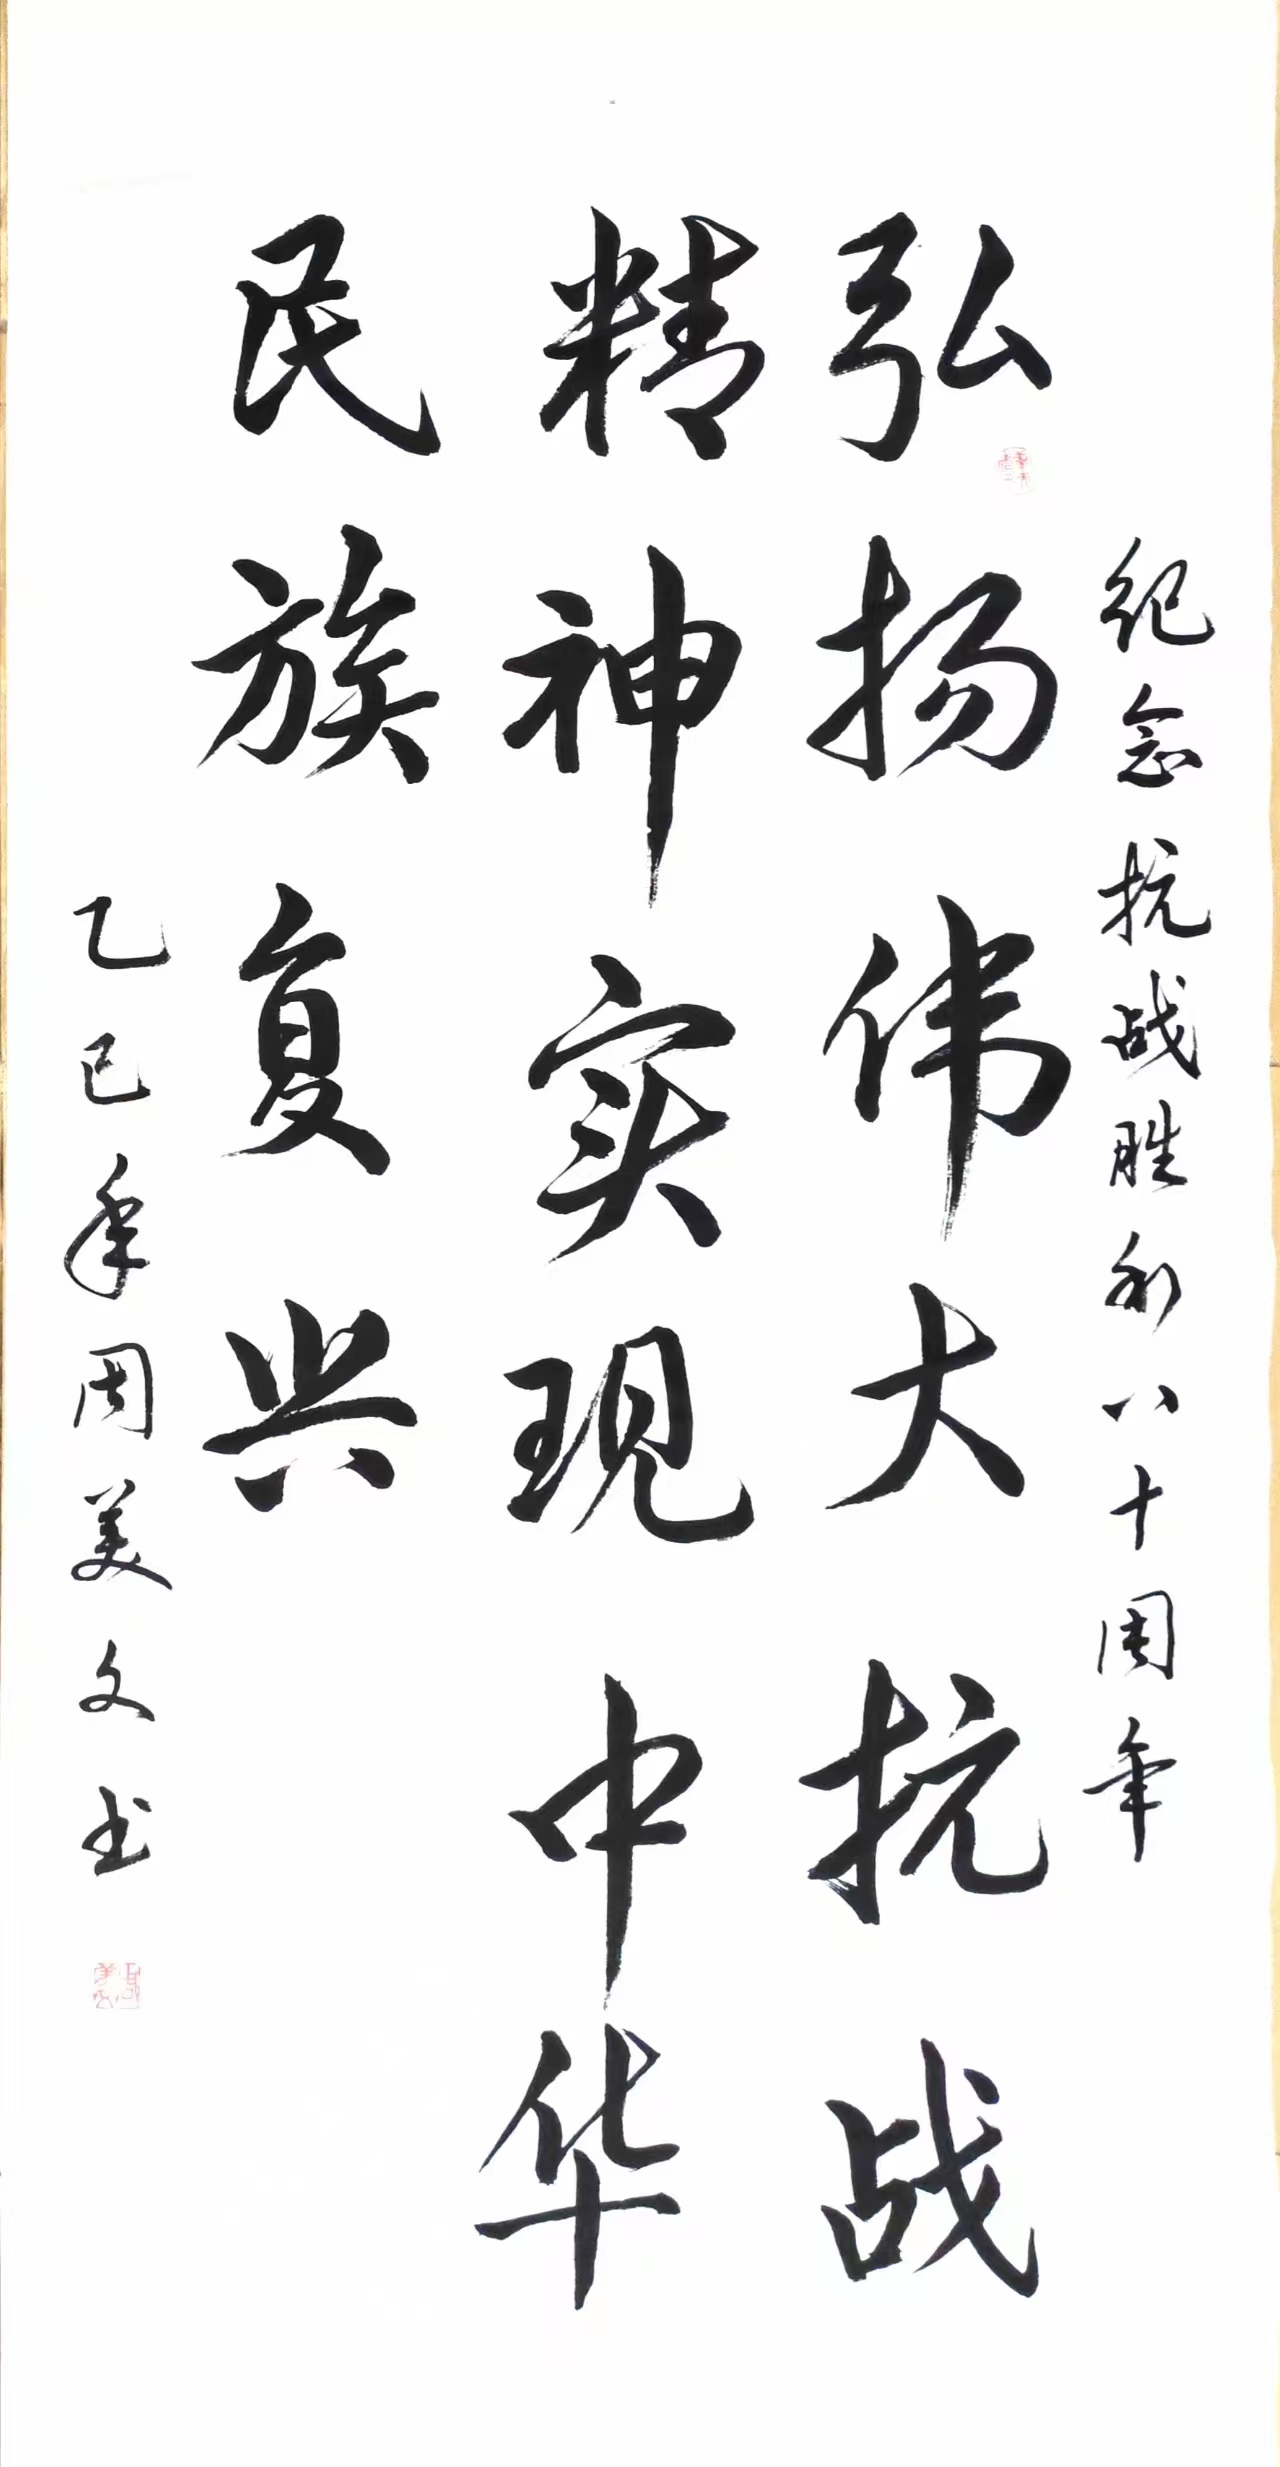 纪念抗战胜利八十周年
弘扬伟大抗战
精神实现中华
民族复兴
乙巳年周美文书